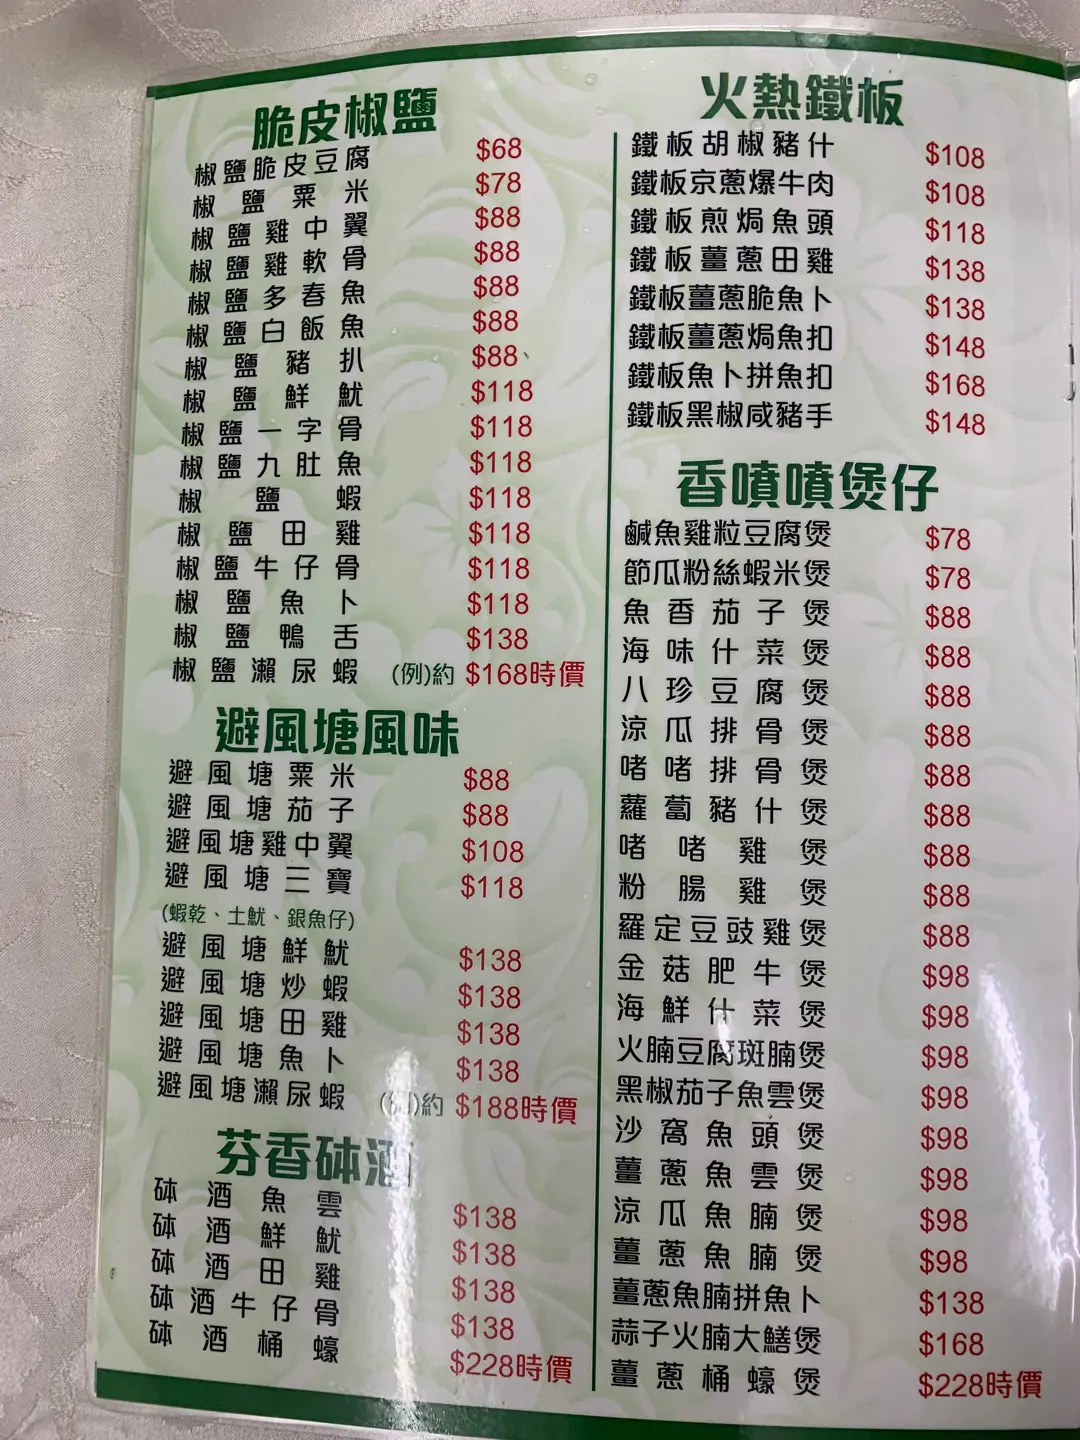 脆皮椒鹽
椒鹽脆皮豆腐 $68
椒鹽粟米 $78
椒鹽雞中翼 $88
椒鹽雞軟骨 $88
椒鹽多春魚 $88
椒鹽白飯魚 $88
椒鹽豬扒 $88
椒鹽鮮魷 $118
椒鹽一字骨 $118
椒鹽九肚魚 $118
椒鹽蝦 $118
椒鹽田雞 $118
椒鹽牛仔骨 $118
椒鹽魚卜 $118
椒鹽鴨舌 $138
椒鹽瀨尿蝦 (例)約 $168時價
避風塘風味
避風塘粟米 $88
避風塘茄子 $88
避風塘雞中翼 $108
避風塘三寶 $118
(蝦乾、土魷、銀魚仔)
避風塘鮮魷 $138
避風塘炒蝦 $138
避風塘田雞 $138
避風塘魚卜 $138
避風塘瀨尿蝦 (例)約 $188時價
芬香砵酒
砵酒魚雲 $138
砵酒鮮魷 $138
砵酒田雞 $138
砵酒牛仔骨 $138
砵酒桶蠔 $228時價
火熱鐵板
鐵板胡椒豬什 $108
鐵板京蔥爆牛肉 $108
鐵板煎焗魚頭 $118
鐵板薑蔥田雞 $138
鐵板薑蔥脆魚卜 $138
鐵板薑蔥焗魚扣 $148
鐵板魚卜拼魚扣 $168
鐵板黑椒咸豬手 $148
香噴噴煲仔
鹹魚雞粒豆腐煲 $78
節瓜粉絲蝦米煲 $78
魚香茄子煲 $88
海味什菜煲 $88
八珍豆腐煲 $88
涼瓜排骨煲 $88
啫啫排骨煲 $88
蘿蔔豬什煲 $88
啫啫雞煲 $88
粉腸雞煲 $88
羅定豆豉雞煲 $88
金菇肥牛煲 $98
海鮮什菜煲 $98
火腩豆腐斑腩煲 $98
黑椒茄子魚雲煲 $98
沙窩魚頭煲 $98
薑蔥魚雲煲 $98
涼瓜魚腩煲 $98
薑蔥魚腩煲 $98
薑蔥魚腩拼魚卜 $138
蒜子火腩大鱔煲 $168
薑蔥桶蠔煲 $228時價